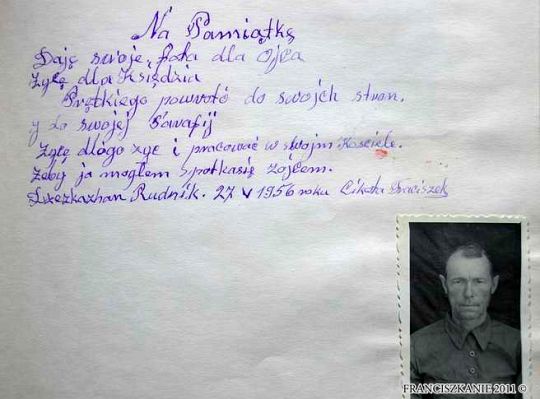 Na Pamiątkę
Daję swoje, fota dla Ojca
Zyczę dla Księdzia
Prętkiego powrotó do swojch stron.
y do swojej Parafij
Zyczę dlógo zyc i pracować w swojm Kosciele.
Zeby ja mogłem spotkasię zojcem.
Rudnik. 27 V 1956 roku
FRANCISZKANIE 2011 ©